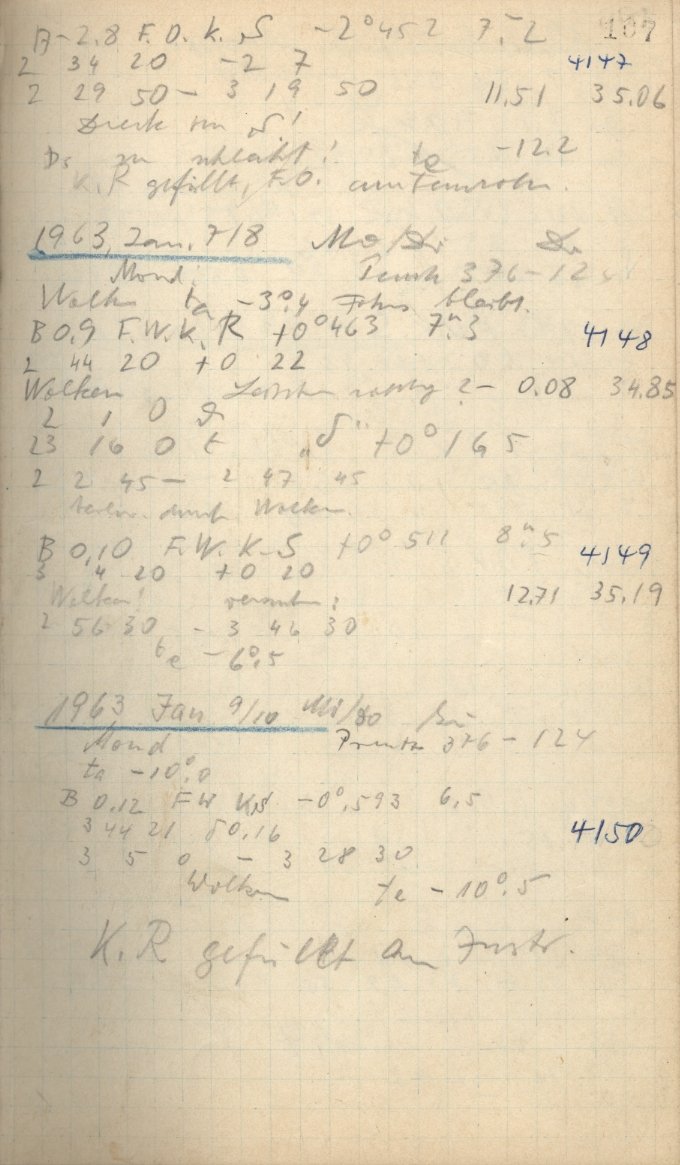 A-2.8 F.O. K.S -2°452 7.2 107
2 34 20 -2 7 4147
2 29 50 - 3 19 50 11.51 35.06
von δ!
zu schlecht! te -12.2
K.R gefüllt, F.O. am
1963, Jan. 7/8 Mo/Di
Mond! 376-12
Wolken ta -3°.4 Fokus bleibt.
B 0,9 F.W. K. R +0°463 7.3 4148
2 44 20 +0 22
Wolken 2- 0.08 34.85
2 1 0
23 16 0 t "δ" +0°165
2 2 45 - 2 47 45
durch Wolken.
B 0,10 F.W. K.S +0°511 8.5 4149
3 4 20 +0 20
Wolken! 12.71 35.19
2 56 30 - 3 46 30
te -6°.5
1963 Jan 9/10 Mi/Do
Mond 376-124
ta -10°.0
B 0.12 FW KS -0°.593 6.5
3 44 21 4150
3 5 0 - 3 28 30
Wolken te -10°.5
K.R gefüllt am Instr.